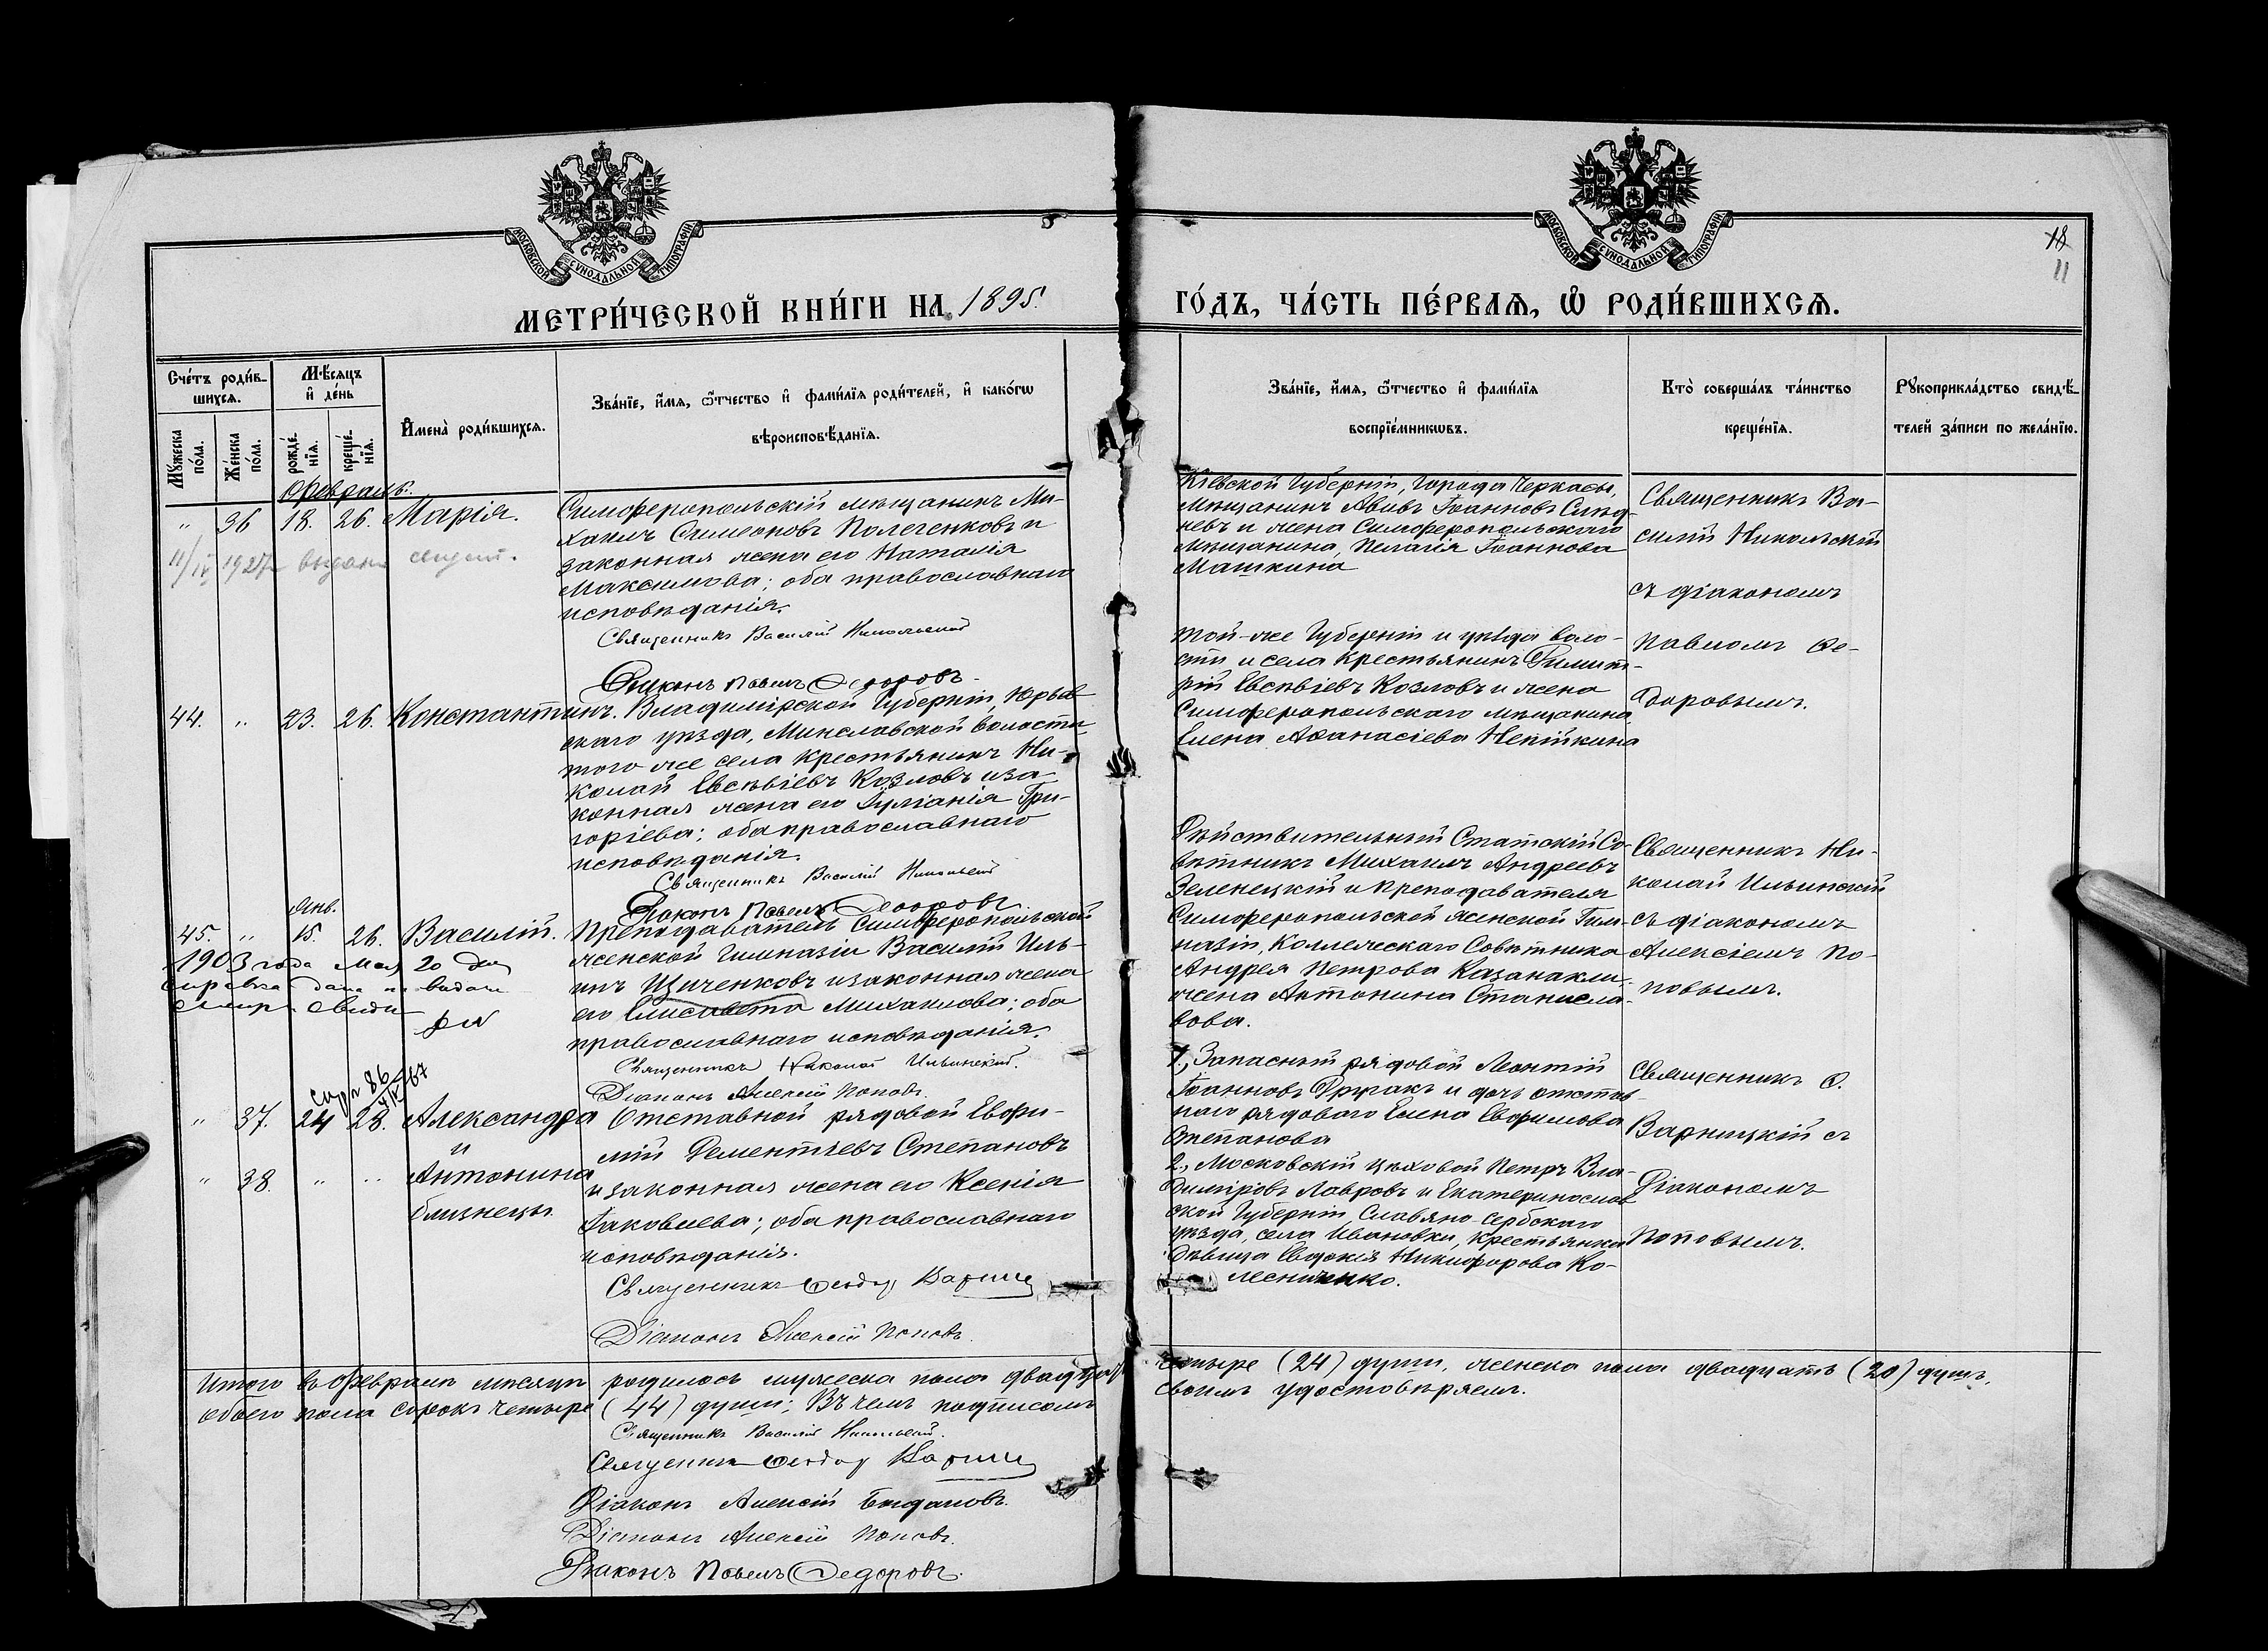 МОСКОВСКОЙ СУНОДАЛЬНОЙ ТИПОГРАФІИ
МОСКОВСКОЙ СУНОДАЛЬНОЙ ТИПОГРАФІИ
18
11
МЕТРИ́ЧЕСКОЙ КНИ́ГИ НА 1895.
ГО́ДЪ, ЧА́СТЬ ПЕ́РВАѦ, Ѡ҆ РОДИ́ВШИХСѦ.
Сче́тъ роди́в-
шихсѧ.
Мѣ́сяцъ
и҆ де́нь
Мꙋ́жеска
по́ла.
Же́нска
по́ла.
рожде́-
нїѧ.
креще́-
нїѧ.
И҆мена̀ роди́вшихсѧ.
Зва́нїе, и҆́мѧ, ѻ҆́тчество и҆ фами́лїѧ роди́телей, и҆ како́гѡ
вѣроисповѣ́данїѧ.
Зва́нїе, и҆́мѧ, ѻ҆́тчество и҆ фами́лїѧ
воспрїе́мникѡвъ.
Кто̀ соверша́лъ та́инство
креще́нїѧ.
Рꙋкоприкла́дство свидѣ́-
телей за́писи по жела́нїю.
Февраль.
" 36 18. 26. Марія.
11/IV 1927 выдана
Симферопольскій мѣщанинъ Ми-
хаилъ Симеоновъ Полегенковъ и
законная жена его Наталія
Максимова; оба православнаго
исповѣданія.
Священникъ Василій Никольскій
Діаконъ Павелъ Ѳедоровъ.
Кіевской Губерніи, города Черкасы,
мѣщанинъ Авивъ Іоанновъ
и жена Симферопольскаго
мѣщанина, Пелагія Іоаннова
Машкина
Священникъ Ва-
силій Никольскій
съ діакономъ
Павломъ Ѳе-
доровымъ.
44. " 23. 26. Константинъ.
Владимірской Губерніи, Юрьев
скаго уѣзда, волости
того же села крестьянинъ Ни-
колай Евсѣвіевъ Козловъ и за-
конная жена его Іуліанія Гри-
горіева; оба православнаго
исповѣданія.
Священникъ Василій Никольскій
Діаконъ Павелъ Ѳедоровъ
той-же Губерніи и уѣзда воло-
сти и села крестьянинъ Димит-
рій Евсѣвіевъ Козловъ и жена
Симферопольскаго мѣщанина
Елена Аѳанасіева Непійкина
Янв.
45. " 15. 26. Василій.
1903 года Мая 20 дня
справка дана на выдачу
Преподаватель Симферопольской
женской Гимназіи Василій Иль-
инъ Щиченковъ и законная жена
его Елисавета Михаилова; оба
православнаго исповѣданія.
Священникъ Николай Ильинскій.
Діаконъ Алексій Поповъ.
Дѣйствительный Статскій Со-
вѣтникъ Михаилъ Андреевъ
Зеленецкій и преподавателя
Симферопольской женской Гим-
назіи, Коллежскаго Совѣтника
Андрея Петрова Казанакли-
жена Антонина Станисла-
вова.
Священникъ Ни-
колай Ильинскій
съ діакономъ
Алексіемъ По-
повымъ.
" 37. 24 28. Александра
и
" 38. " " Антонина
близнецы.
Отставной рядовой Евфи-
мій Дементіевъ Степановъ
и законная жена его Ксенія
Іаковлева; оба православнаго
исповѣданія.
Священникъ Ѳеодоръ
Діаконъ Алексій Поповъ.
1., Запасный рядовой Леонтій
Іоанновъ Дружакъ и дочь отстав-
наго рядоваго Елена Евфимова
Степанова
2., Московскій цѣховой Петръ Вла-
диміровъ Лавровъ и Екатеринослав
ской Губерніи Славяно-Сербскаго
уѣзда, села Ивановки, крестьянка
дѣвица Евдокія Никифорова Ко-
лесниченко.
Священникъ Ѳ.
Варницкій съ
Діакономъ
Поповымъ.
Итого въ Февралѣ мѣсяцѣ родилось мужеска пола двадцать четыре (24) души, женска пола двадцать (20) душъ,
обоего пола сорокъ четыре (44) души; Въ чемъ подписомъ своимъ удостовѣряемъ.
Священникъ Василій Никольскій.
Священникъ Ѳеодоръ
Діаконъ Алексій
Діаконъ Алексій Поповъ.
Діаконъ Павелъ Ѳедоровъ.